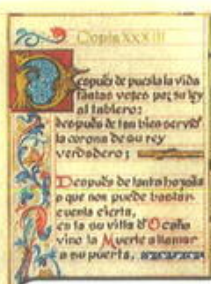 Copla XXXIII
Después de puesta la vida
tantas veces por su ley
al tablero;
después de tan bien servida
la corona de su rey
verdadero;
Después de tanta hazaña
a que non puede bastar
cuenta cierta,
en la su villa d'Ocaña
vino la Muerte a llamar
a su puerta,